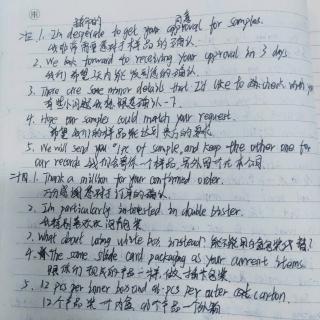 1. I'm desperate to get your approval for samples.
我非常需要您对于样品的确认
2. We look forward to receiving your approval in 3 days
我们希望三天内能收到您的确认.
3. There are some minor details that I'd like to check with you
有些小问题我想跟您确认一下.
4. Hope our samples could match your request.
希望我们的样品能达到您的要求.
5. We will send you of sample, and keep the other one for
our records 我们会寄你一个样品, 另外留一个在公司
1. Thank a million for your confirmed order.
万分感谢您对于订单的确认.
2. I'm particularly interested in double blister.
我特别喜欢双泡壳包装
3. What about using white box instead? 能不能用白盒包装代替?
4. The same size and packaging as your current items.
跟你们现在的产品一样,做
5. 12 pcs per inner box and pcs per outer carton.
12个产品装一个内盒, 个产品一个外箱